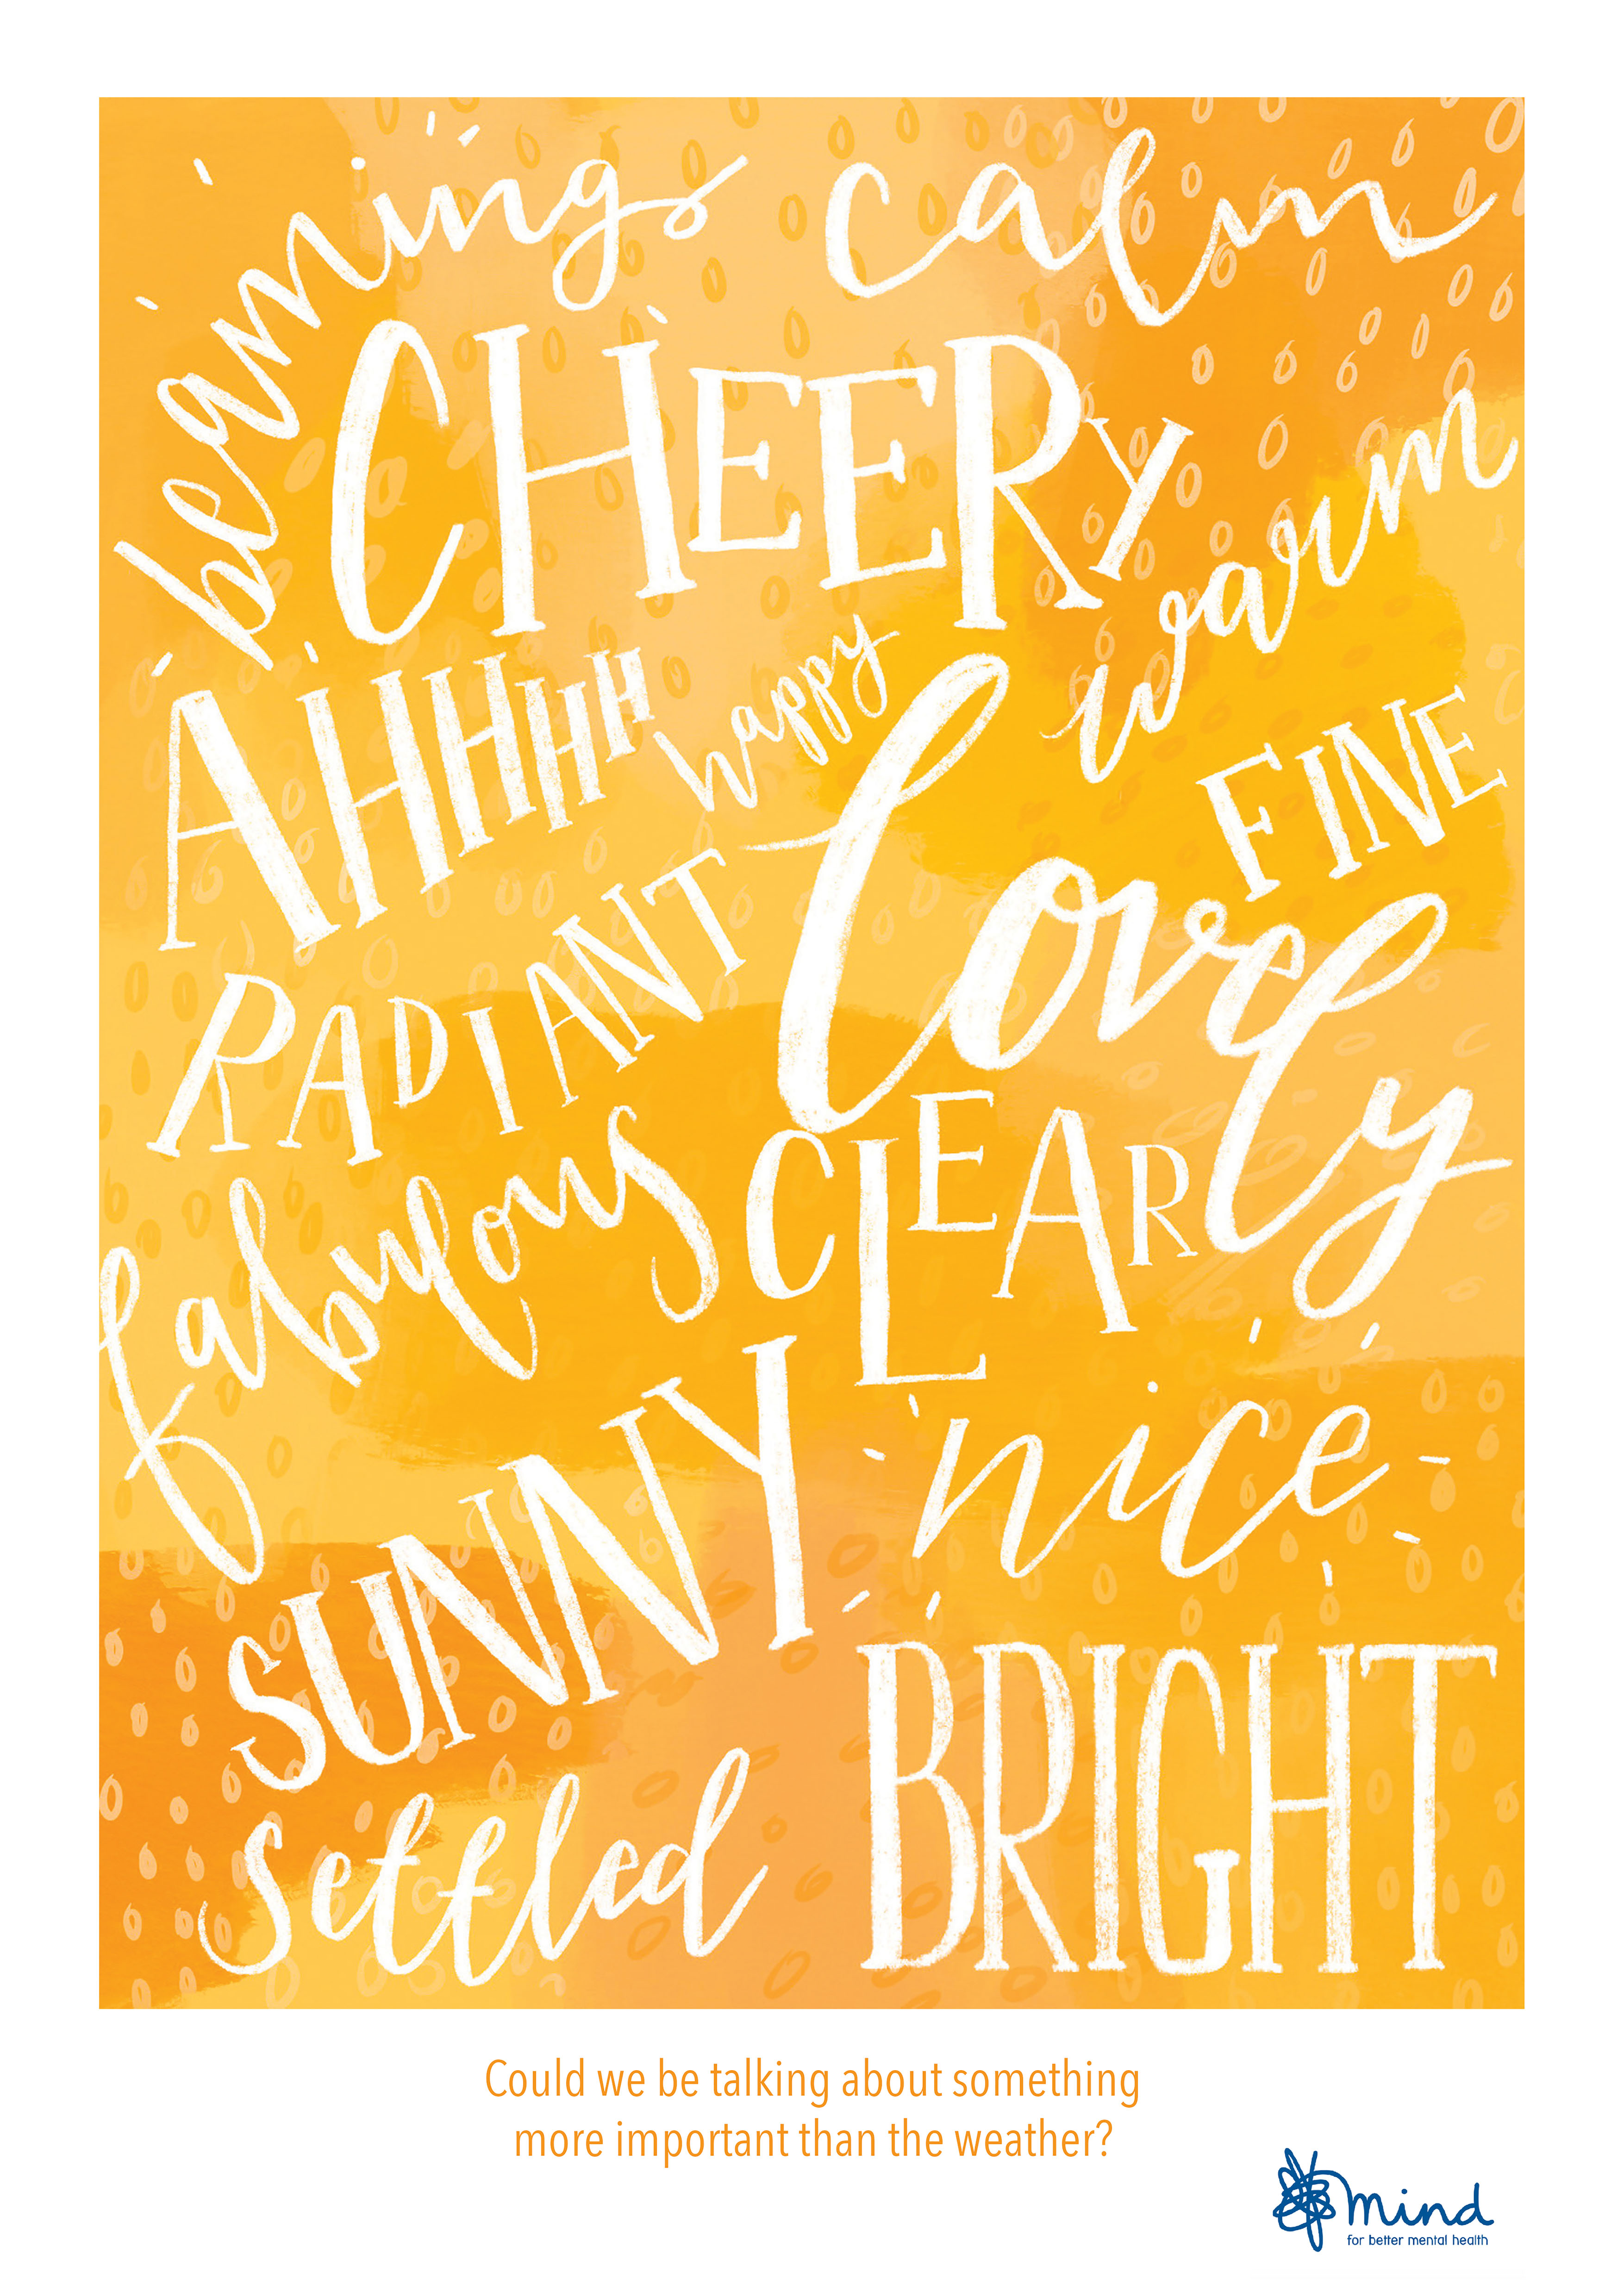 beaming
calm
CHEERY
warm
AHHHHH
happy
lovely
FINE
RADIANT
fabulous
CLEAR
SUNNY
nice
settled
BRIGHT
Could we be talking about something
more important than the weather?
mind
for better mental health